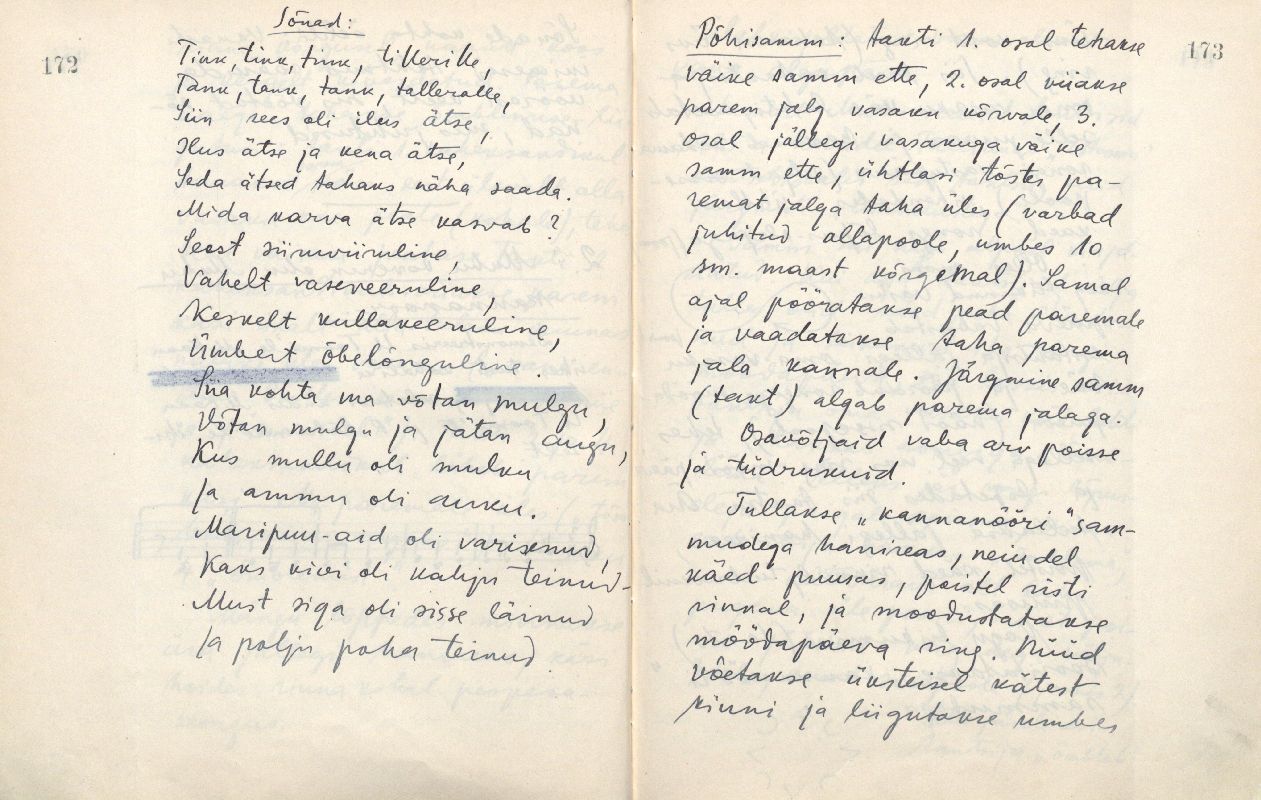 172
Sõnad:
Tink, tink, tink, tillerille,
Tank, tank, tank, talleralle,
Siin sees oli ilus ätse,
Ilus ätse ja kena ätse,
Seda ätsed tahaks näha saada.
Mida karva ätse kasvab?
Seest siimuiiruline,
Vahelt vaseveeruline,
Keskelt kullakeeruline,
Ümbert õbelõnguline.
Siia kohta ma võtan mulgu,
Võtan mulgu ja jätan augu,
Kus mullu oli mulku
Ja ammu oli auku.
Maripuu-aid oli varisenud,
Kaks kivi oli kahju teinud-
Must siga oli sisse läinud
Ja palju paha teinud.
173
Põhisamm: Takti 1. osal tehakse
väike samm ette, 2. osal viiakse
parem jalg vasaku kõrvale, 3.
osal jällegi vasakuga väike
samm ette, ühtlasi tõstes pa-
remat jalga taha üles (varbad
juhitud allapoole, umbes 10
sm. maast kõrgemal). Samal
ajal pööratakse pead paremale
ja vaadatakse taha parema
jala kannale. Järgmine samm
(takt) algab parema jalaga.
Osavõtjaid vaba arv poisse
ja tüdrukuid.
Tullakse „kannanööri" sam-
mudega hanireas, neiudel
käed puusas, poistel risti
rinnal, ja moodustatakse
möödapäeva ring. Nüüd
võetakse üksteisel kätest
kinni ja liigutakse umbes